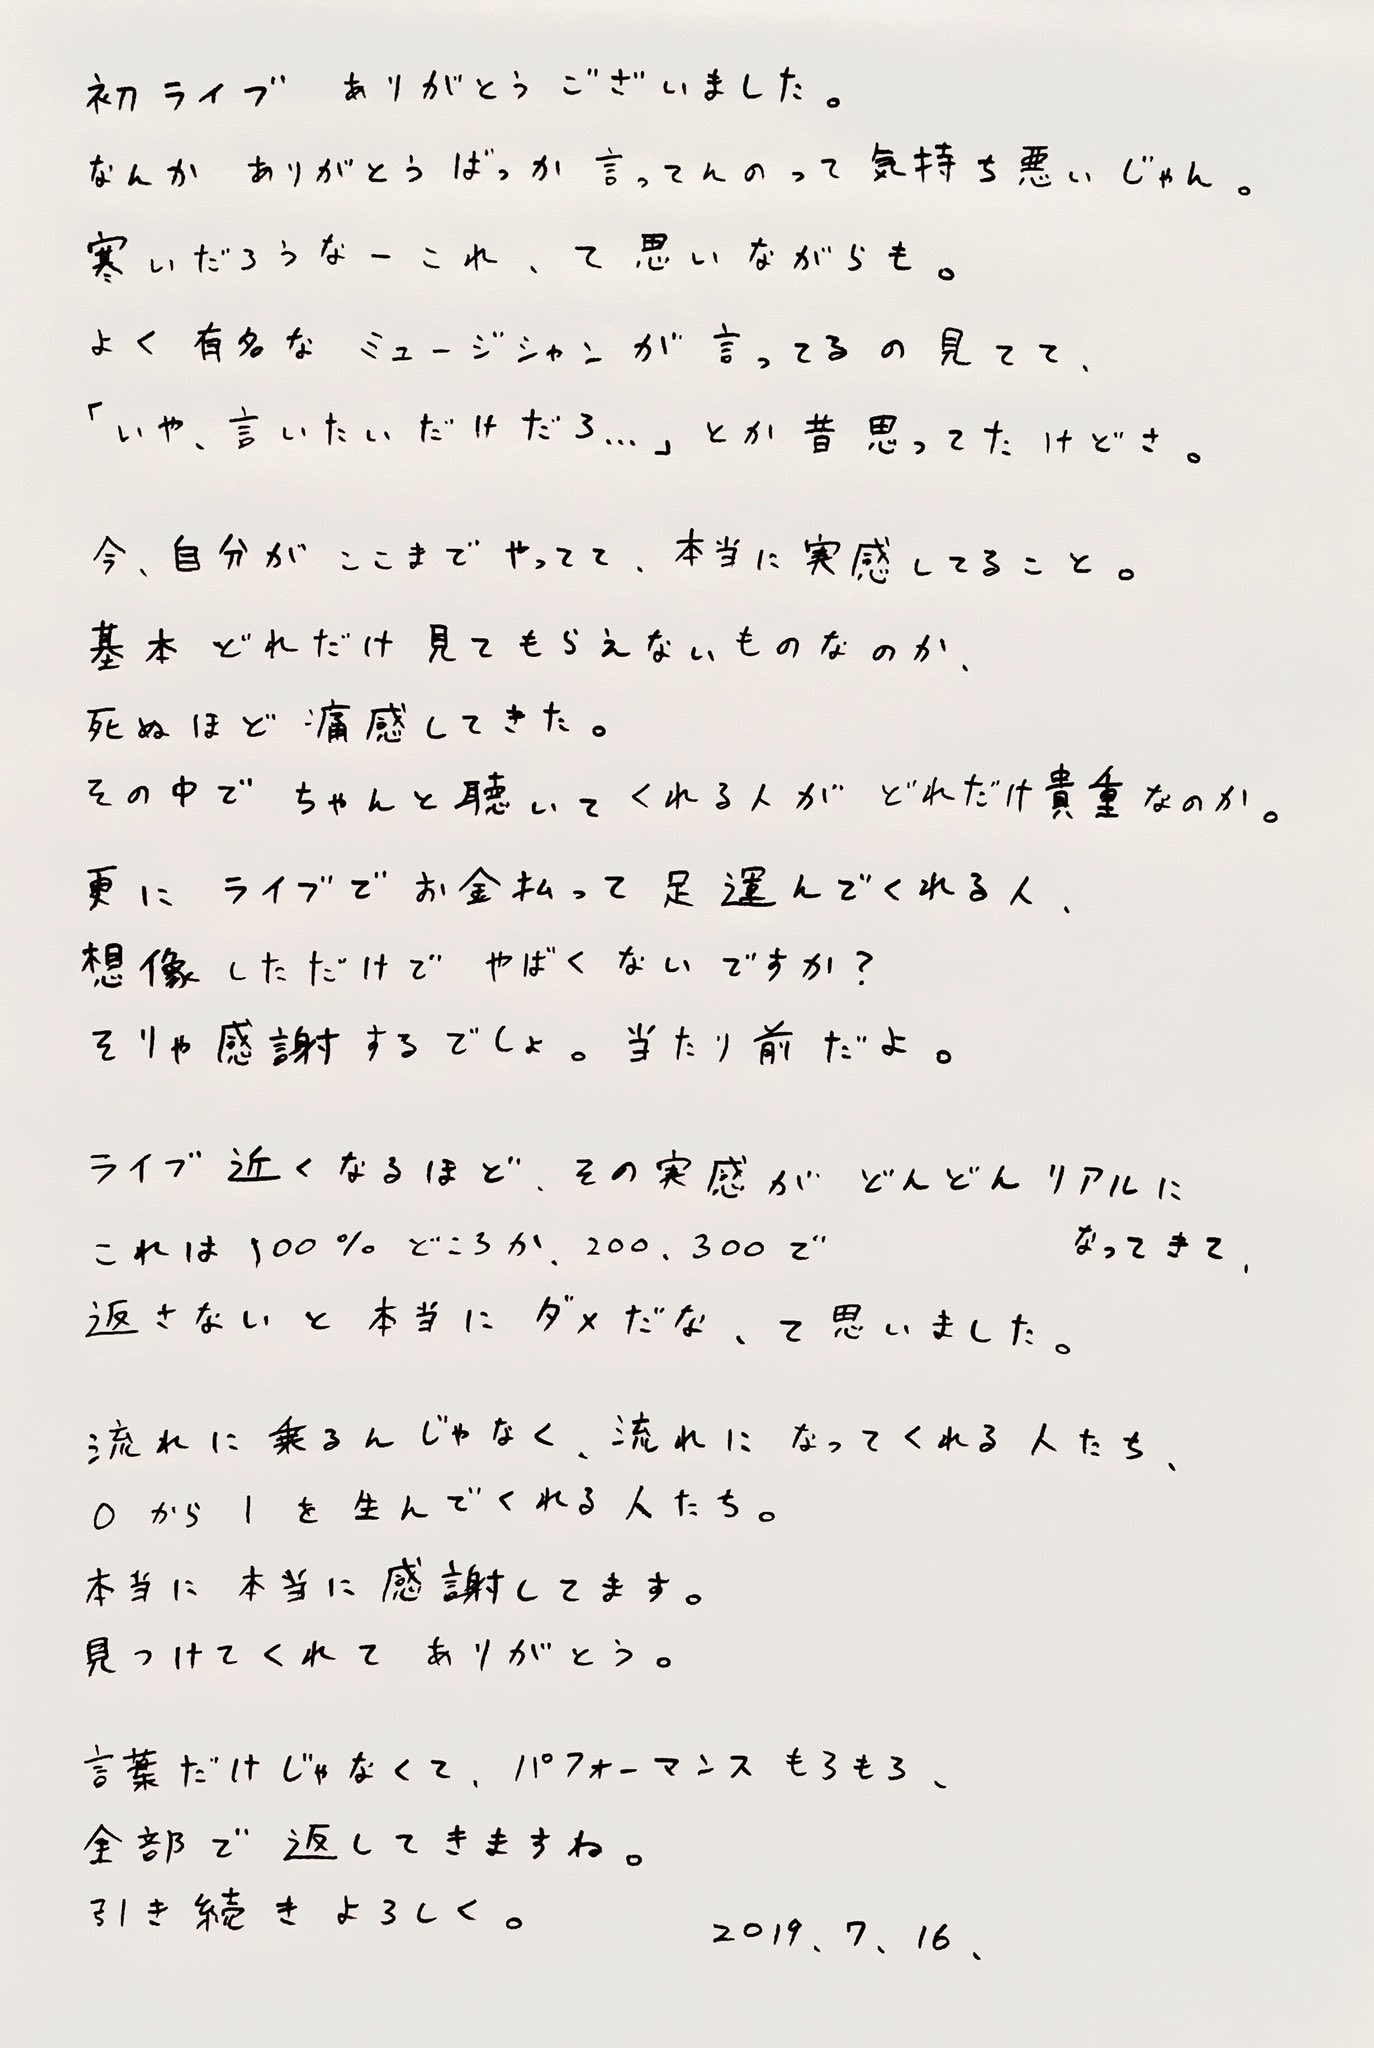 初ライブ ありがとうございました。
なんか ありがとうばっか 言ってんのって 気持ち悪いじゃん。
寒いだろうなーこれ、て思いながらも。
よく有名な ミュージシャンが 言ってるの見てて、
「いや、言いたいだけだろ…」とか昔思ってたけどさ。
今、自分が ここまで やってて、本当に実感してること。
基本 どれだけ 見てもらえないものなのか、
死ぬほど 痛感してきた。
その中で ちゃんと聴いて くれる人が どれだけ貴重なのか。
更に ライブで お金払って 足運んでくれる人、
想像しただけで やばくないですか?
そりゃ感謝するでしょ。当たり前だよ。
ライブ近くなるほど、その実感が どんどんリアルに
なってきて、
これは100%どころか、200、300で
返さないと 本当に ダメだな、て思いました。
流れに乗るんじゃなく、流れに なってくれる人たち、
0から1を生んでくれる人たち。
本当に 本当に感謝してます。
見つけてくれて ありがとう。
言葉だけじゃなくて、パフォーマンスもろもろ、
全部で 返してきますね。
引き続きよろしく。
2019、7、16、